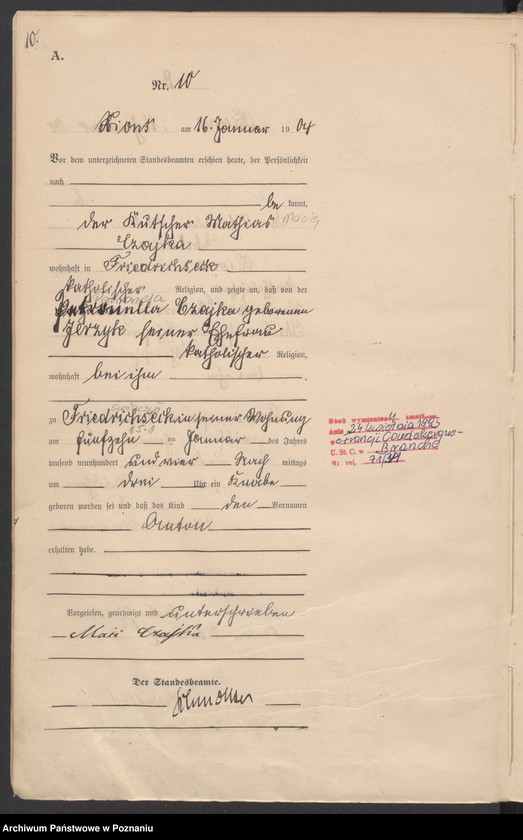 10.
A.
Nr. 10
Xions am 16. Januar 1904
Vor dem unterzeichneten Standesbeamten erschien heute, der Persönlichkeit
nach
be kannt,
der Kutscher Mathias Maciej
Czajka
wohnhaft in Friedrichseck
katholischer Religion, und zeigte an, daß von der
Petronella Czajka geborenen
seiner Ehefrau
katholischer Religion,
wohnhaft bei ihm
zu Friedrichseck in seiner Wohnung
am fünfzehn ten Januar des Jahres
tausend neunhundert und vier Nach mittags
um drei Uhr ein Knabe
geboren worden sei und daß das Kind den Vornamen
Anton
erhalten habe.
Vorgelesen, genehmigt und unterschrieben
Czajka
Der Standesbeamte.
Osob wymieniony zmarł
dnia 24 kwietnia
w Francji
U. St. C. w
Nr. rej.
Archiwum Państwowe w Poznaniu